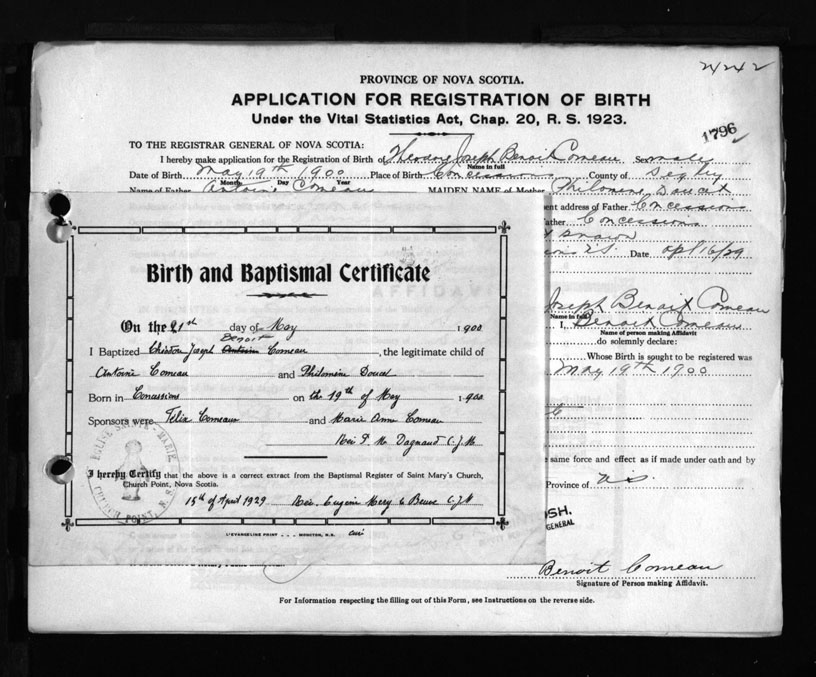 2242
PROVINCE OF NOVA SCOTIA.
APPLICATION FOR REGISTRATION OF BIRTH
Under the Vital Statistics Act, Chap. 20, R. S. 1923.
1796
TO THE REGISTRAR GENERAL OF NOVA SCOTIA:
I hereby make application for the Registration of Birth of Theodore Joseph Benoit Comeau Sex male
Name in full
Date of Birth May 19th 1900 Place of Birth Concessions County of Digby
Month Day Year
Name of Father Antoine Comeau MAIDEN NAME of Mother Philomene Doucet
ent address of Father Concessions
ather Concessions
known
N.S. Date Apl 16/29
Joseph Benoit Comeau
Name in full
I, Benoit Comeau
Name of person making Affidavit
do solemnly declare:
Whose Birth is sought to be registered was
May 19th 1900
e same force and effect as if made under oath and by
Province of N.S.
OSH.
GENERAL
Benoit Comeau
Signature of Person making Affidavit.
For Information respecting the filling out of this Form, see Instructions on the reverse side.
Birth and Baptismal Certificate
On the 21st day of May 1900
Benoit
I Baptized Joseph Antoine Comeau, the legitimate child of
Antoine Comeau and Philomène Doucet
Born in Concessions on the 19th of May 1900
Sponsors were Félix Comeau and Marie Anne Comeau
P. M. Dagnaud C.J.M.
I hereby Certify that the above is a correct extract from the Baptismal Register of Saint Mary's Church,
Church Point, Nova Scotia.
15th of April 1929 Rev. Eugène C.J.M
L'EVANGELINE PRINT - - - MONCTON, N.B. curé
SAINTE-MARIE
CHURCH POINT, N.S.